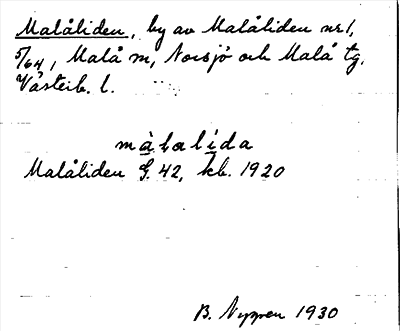 Malåliden, by av Malåliden nr 1,
5/64, Malå sn, Norsjö och Malå tg,
Västerb. l.
màlalída
Malåliden G. 42, kb. 1920
B. Nygren 1930